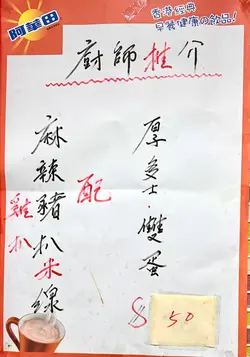 阿華田
香港經典
早餐健康の飲品!
廚師推介
厚多士·雙蛋
配
麻辣豬扒米線
雞扒
$50